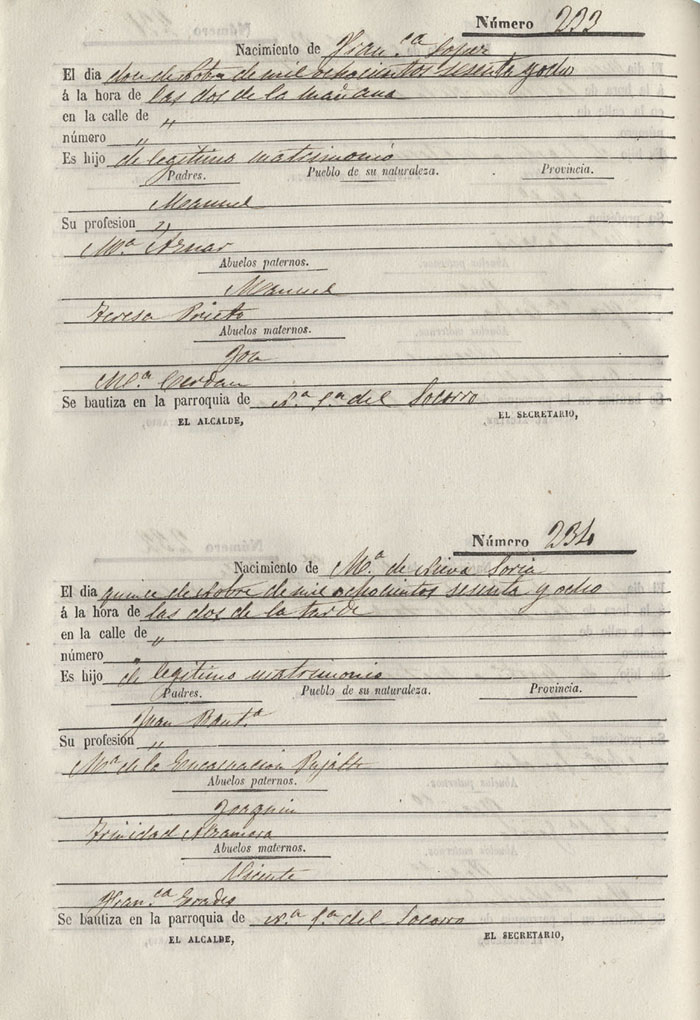 Número 233
Nacimiento de Fran.ca Lopez
El dia doce de Octbre de mil ochocientos sesenta y ocho
á la hora de las dos de la mañana
en la calle de "
número "
Es hijo de legitimo matrimonio
Padres. Pueblo de su naturaleza. Provincia.
Manuel
Su profesion "
M.a Aznar
Abuelos paternos.
Manuel
Teresa Prieto
Abuelos maternos.
M.a Cerdan
Se bautiza en la parroquia de N.a S.a del Socorro
EL ALCALDE, EL SECRETARIO,
Número 234
Nacimiento de M.a de Nieva Soria
El dia quince de Octobre de mil ochocientos sesenta y ocho
á la hora de las dos de la tarde
en la calle de "
número "
Es hijo de legitimo matrimonio
Padres. Pueblo de su naturaleza. Provincia.
Juan Baut.a
Su profesión "
M.a de la Encarnacion Pujalte
Abuelos paternos.
Joaquin
Trinidad
Abuelos maternos.
Vicente
Fran.ca Prades
Se bautiza en la parroquia de N.a S.a del Socorro
EL ALCALDE, EL SECRETARIO,